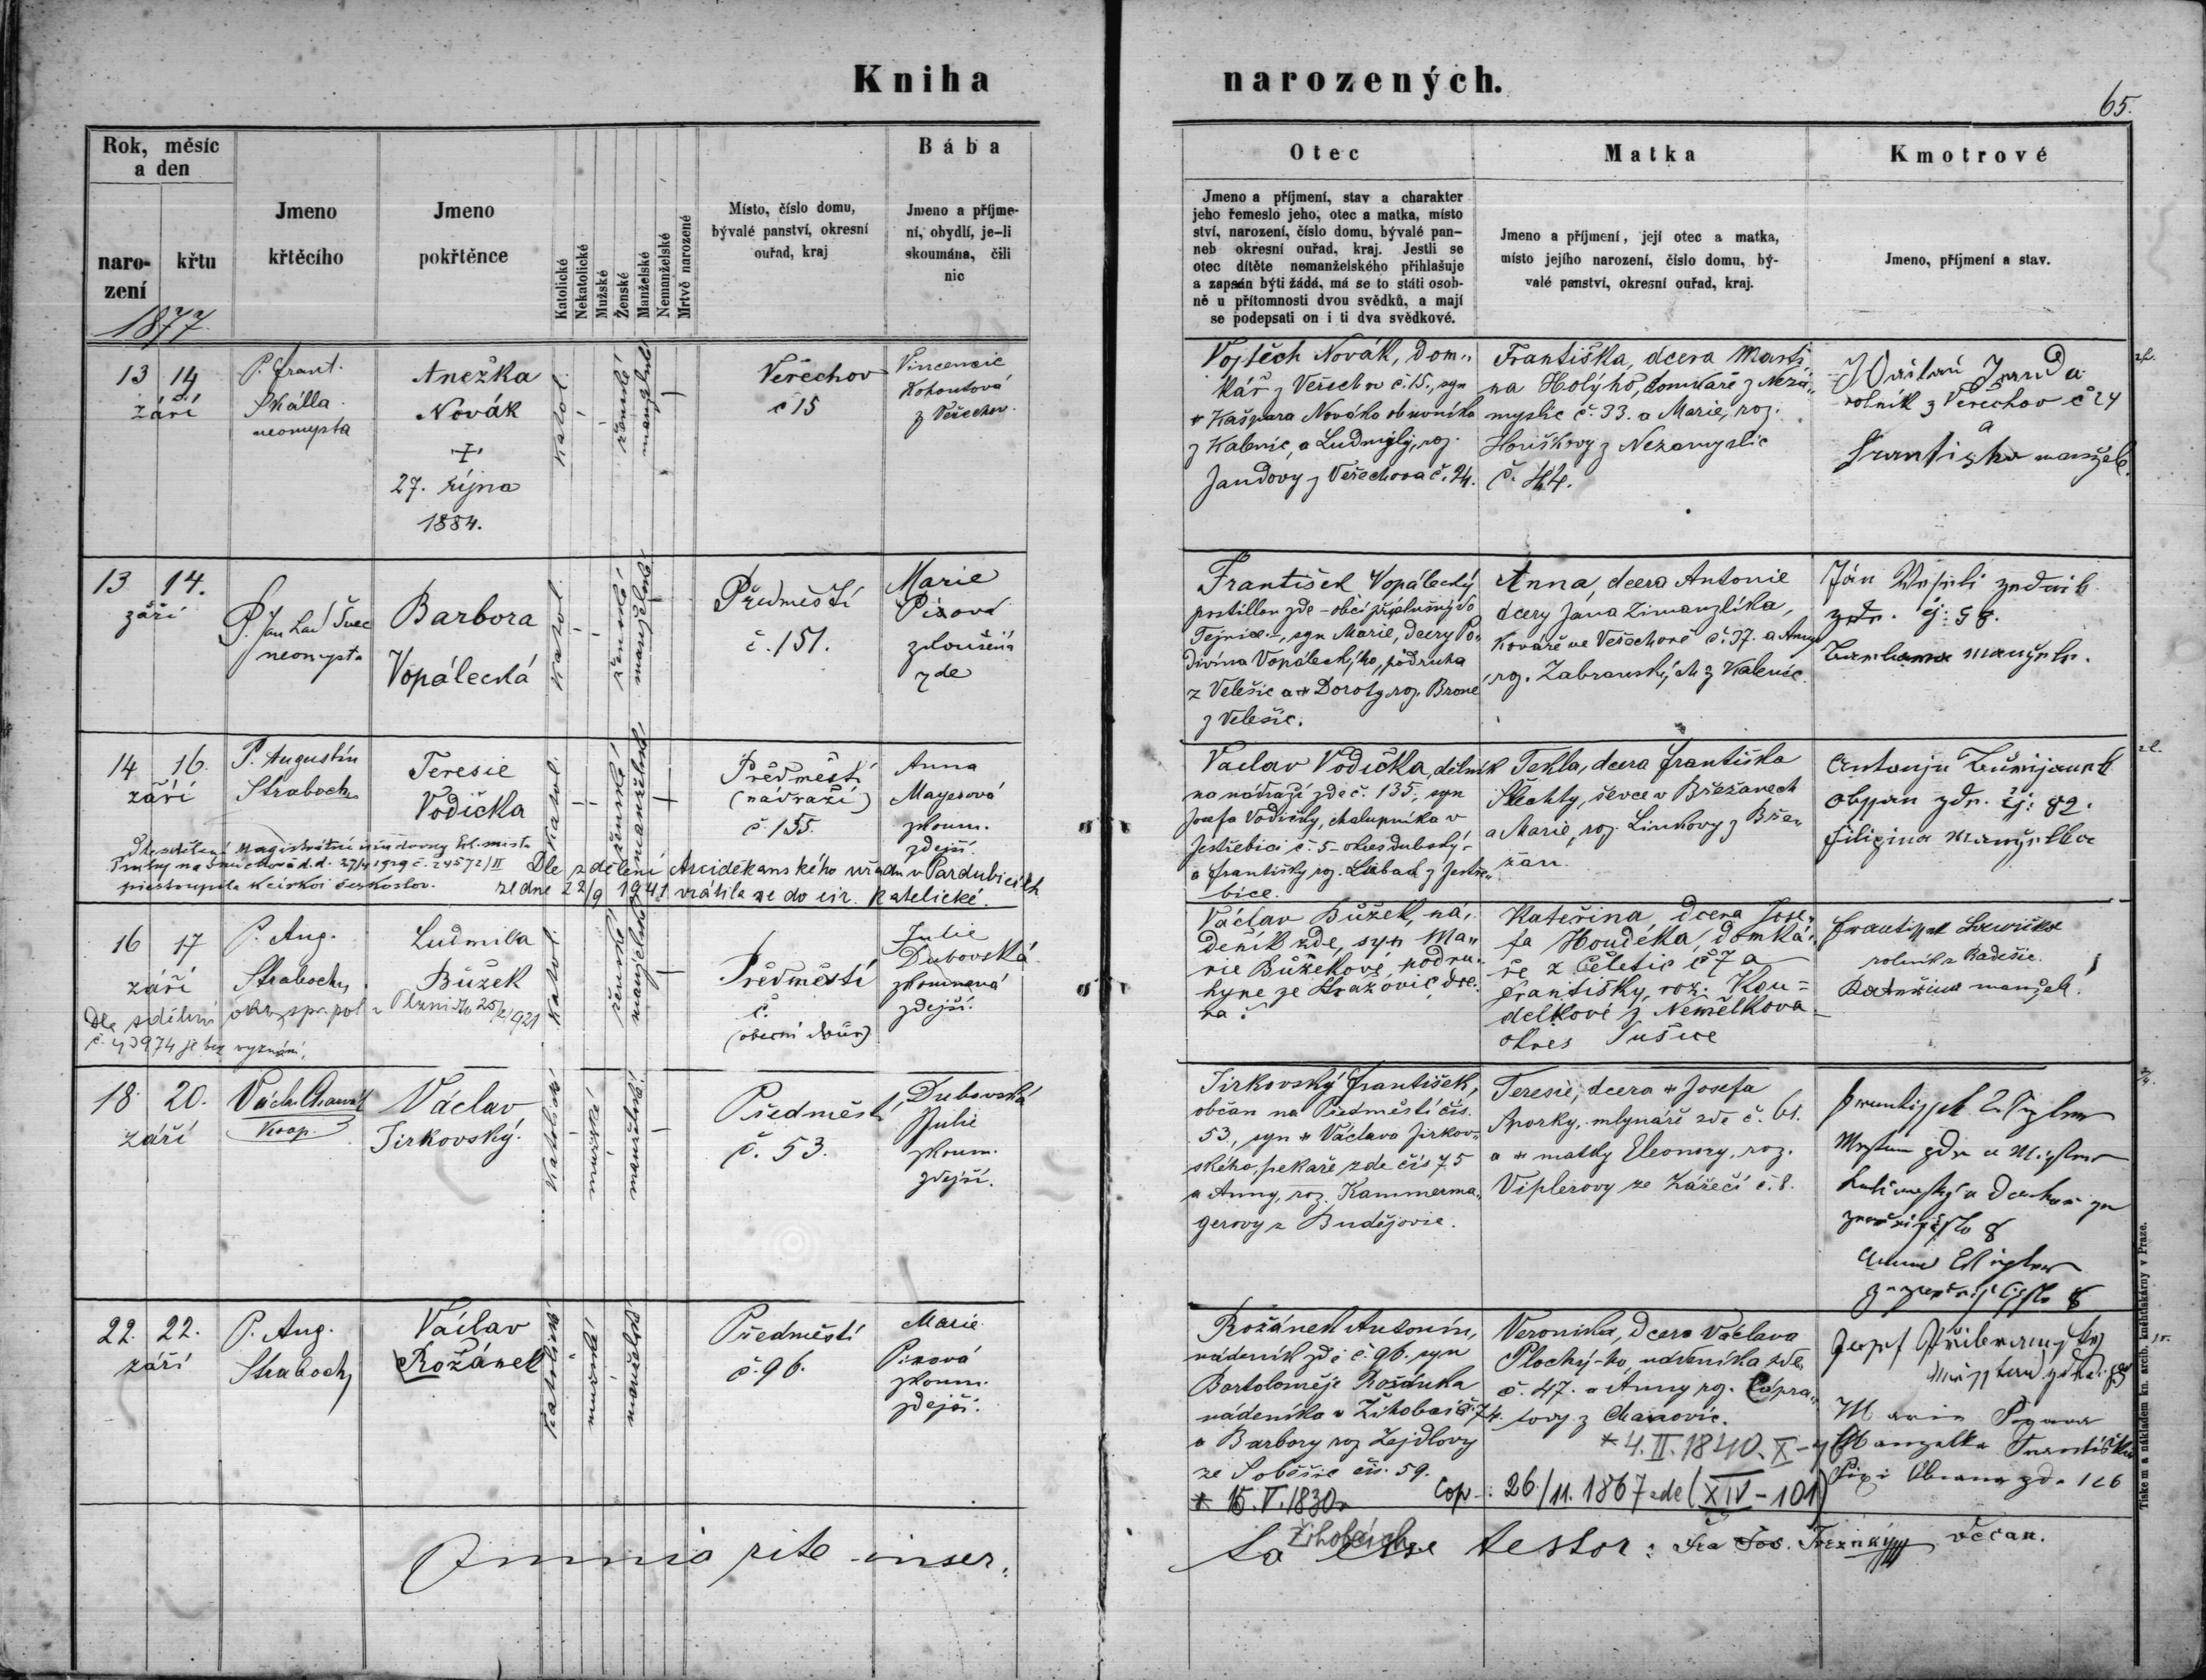 Kniha narozených.
65.
Rok, měsíc
a den
naro-
zení
křtu
1877
Jmeno
křtěcího
Jmeno
pokřtěnce
Katolické
Nekatolické
Mužské
Ženské
Manželské
Nemanželské
Mrtvě narozené
Místo, číslo domu,
bývalé panství, okresní
ouřad, kraj
Bába
Jmeno a příjme-
ní, obydlí, je-li
skoumána, čili
nic
Otec
Jmeno a příjmení, stav a charakter
jeho řemeslo jeho, otec a matka, místo
ství, narození, číslo domu, bývalé pan-
neb okresní ouřad, kraj. Jestli se
otec dítěte nemanželského přihlašuje
a zapsán býti žádá, má se to státi osob-
ně u přítomnosti dvou svědků, a mají
se podepsati on i ti dva svědkové.
Matka
Jmeno a příjmení, její otec a matka,
místo jejího narození, číslo domu, bý-
valé panství, okresní ouřad, kraj.
Kmotrové
Jmeno, příjmení a stav.
13 14
září
P. Frant.
Skálla
neomysta
Anežka
Novák
+
27. října
1884.
katol.
ženské
manželské
Veřechov
č 15
Vincencie
Kohoutová
z Veřechov.
Vojtěch Novák, dom-
kář z Veřechov č. 15, syn
* Kašpara Nováka
z Kalenic, a Ludmily, roz.
Jandovy z Veřechova č. 24.
Františka, dcera Marti-
na Holýho, domkaře z Neza-
myslic č. 33. a Marie, roz.
Houškovy z Nezamyslic
č. 44.
Janda
rolník z Veřechov č 24
a
Františka manžel.
13 14.
září
P. Jan Lad Švec
neomysta
Barbora
Vopálecká
katol.
ženské
manželské
Předměstí
č. 151.
Marie
Pixová
zkoušená
zde
František Vopálecký
postillon zde - obcí příslušný do
Tejnice, syn Marie, dcery Po-
divína Vopáleckýho, podruha
z Velešic a * Doroty roz. Brone
z Velešic.
Anna, dcera Antonie
dcery Jána Zimanzlíka,
kováře ve Veřechově č. 37. a Anny
roz. Zabranských z Kalenic.
Ján
manžele.
14 16.
září
P. Augustin
Straboch
Teresie
Vodička
katol.
ženské
manželské
Předměstí
(nádraží)
č. 155.
Anna
Mayerová
zkoum.
zdejší.
Václav Vodička, dělník
na nádraží zde č. 135, syn
Josefa Vodičky, chalupníka v
Jestřebici č. 5 - okres dubský -
a Františky roz. Labad z Jestře-
bice.
Tekla, dcera Františka
Šlechty, ševce v Břežanech
a Marie, roz. Linhovy z Bře-
žan.
Filipina manželka
Dle sdělení Arciděkanského úřadu v Pardubicích
ze dne 22/9 1941 vrátila se do cir. katolické.
16 17
září
P. Aug.
Straboch
Ludmilla
Bůžek
katol.
ženské
manželské
Předměstí
č.
(obecní dvůr)
Julie
Dubovská
zkoumaná
zdejší.
Dle sdělení okr. spr. pol. v Plzni 25/2 1921
č. 43974 je bez vyznání.
Václav Bůžek, ná-
deník zde, syn Ma-
rie Bůžkové, podru-
hyne ze Hražovic, dce-
ra
Kateřina, dcera Jose-
fa Houdéka, domká-
ře z Čéletic č 7 a
Františky, roz. Kou-
delkové z Nemělkova
okres Sušice
rolník z Radešic.
Kateřina manžel.
18. 20.
září
Václ. Charvát
Koop.
Václav
Jirkovský.
Katolické
mužské
manželské
Předměstí
č. 53.
Dubovská
Julie
zkoum.
zdejší.
Jirkovský František,
občan na Předměstí čís.
53., syn * Václava Jirkov-
ského, pekaře zde čís 75
a Anny, roz. Kammerma-
gerovy z Budějovic.
Teresie, dcera * Josefa
Sporky, mlynáře zde č. 61.
a * matky Eleonory, roz.
Viplerovy ze Zářečí č. 8.
22. 22.
září
P. Aug.
Straboch
Václav
Rožánek
Katolické
mužské
manželské
Předměstí
č. 96.
Marie
Pixová
zkoum.
zdejší.
Rožánek Antonín,
nádeník zde č. 96. syn
Bartoloměje Rožánka
nádeníka v Žihobcích č. 74.
a Barbory roz. Zejdlovy
ze Soběšic čís. 59.
* 15. V. 1830
Žihobcích
Veronika, dcera Václava
Plochý-ho, nádeníka zde,
č. 47. a Anny roz. Cápra-
tovy z Chanovic.
* 4. II. 1840. X -
Cop.: 26/11. 1867 zde (XIV - 101)
Marie
Manzelka Františka
zde 126
Omnia rite inser-
ta esse testor: Fra Jos. děkan.
Tiskem a nákladem kn. arcib. knihtiskárny v Praze.